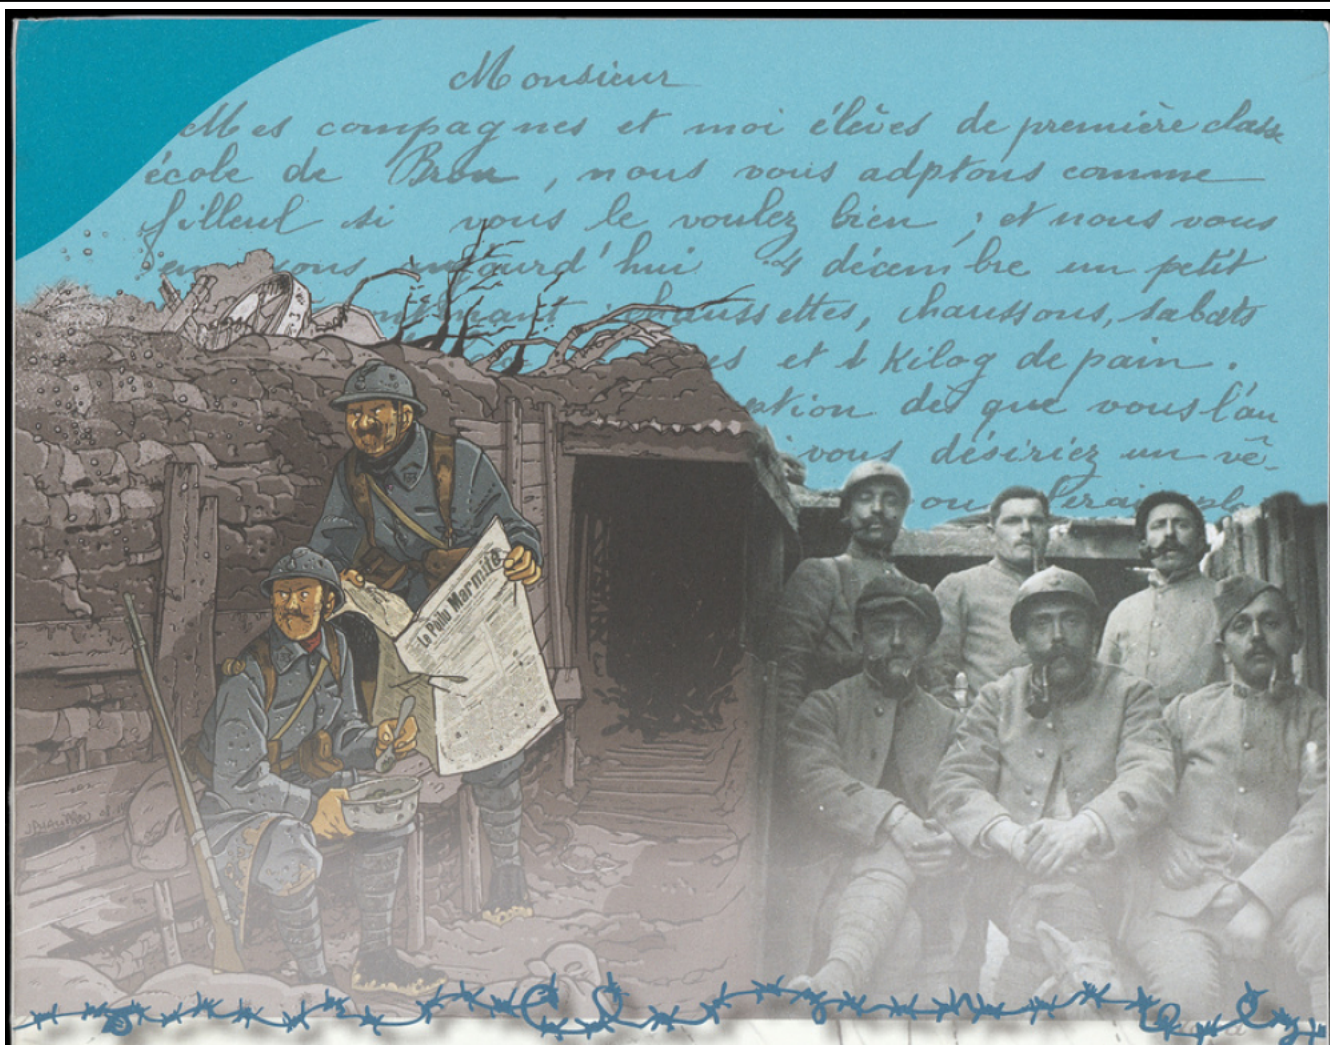 Monsieur
Mes compagnes et moi élèves de première classe
école de Bron, nous vous adptons comme
filleul si vous le voulez bien ; et nous vous
hui 4 décembre un petit
chaussettes, chaussons, sabots
et 1 Kilog de pain.
des que vous l'au
vous désiriez un vê-
Le Poilu Marmite